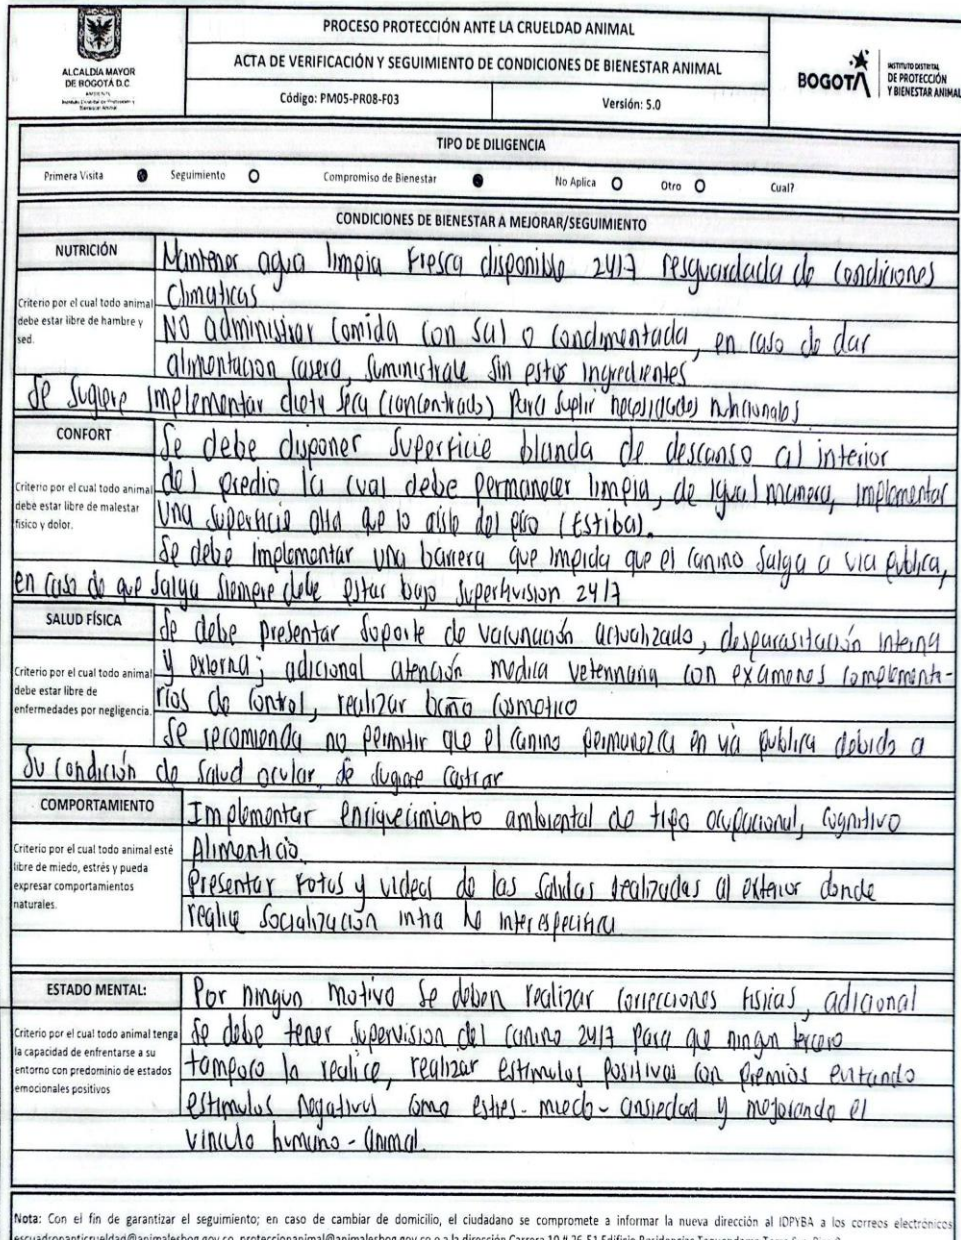 ALCALDÍA MAYOR
DE BOGOTÁ D.C
AMBIENTE
Instituto Distrital de Protección y
Bienestar Animal
PROCESO PROTECCIÓN ANTE LA CRUELDAD ANIMAL
ACTA DE VERIFICACIÓN Y SEGUIMIENTO DE CONDICIONES DE BIENESTAR ANIMAL
Código: PM05-PR08-F03
Versión: 5.0
BOGOTÁ
INSTITUTO DISTRITAL
DE PROTECCIÓN
Y BIENESTAR ANIMAL
TIPO DE DILIGENCIA
Primera Visita Seguimiento Compromiso de Bienestar No Aplica Otro Cual?
CONDICIONES DE BIENESTAR A MEJORAR/SEGUIMIENTO
NUTRICIÓN
Criterio por el cual todo animal
debe estar libre de hambre y
sed.
Mantener agua limpia Fresca disponible 24/7 resguardada de condiciones
Climaticas
NO administrar comida con sal o condimentada, en caso de dar
alimentacion casera, suministrale sin estos ingredientes
Se sugiere implementar dieta seca (concentrado) Para suplir necesidades nutricionales
CONFORT
Criterio por el cual todo animal
debe estar libre de malestar
físico y dolor.
Se debe disponer superficie blanda de descanso al interior
del predio la cual debe permanecer limpia, de igual manera, implementar
una superficie alta que lo aisle del piso (Estiba).
Se debe implementar una barrera que impida que el canino salga a via publica,
en caso de que salga siempre debe estar bajo supertivision 24/7
SALUD FÍSICA
Criterio por el cual todo animal
debe estar libre de
enfermedades por negligencia.
Se debe presentar soporte de vacunación actualizado, desparasitación interna
y externa; adicional atención medica veterinaria con examenes complementa-
rios de control, realizar baño cosmetico
Se recomienda no permitir que el canino permanezca en vía publica debido a
su condición de salud ocular, se sugiere castrar
COMPORTAMIENTO
Criterio por el cual todo animal esté
libre de miedo, estrés y pueda
expresar comportamientos
naturales.
Implementar enriquecimiento ambiental de tipo ocupacional, cognitivo
Alimenticio.
Presentar Fotos y videos de las salidas realizadas al exterior donde
realice socialización intra he interespecifica
ESTADO MENTAL:
Criterio por el cual todo animal tenga
la capacidad de enfrentarse a su
entorno con predominio de estados
emocionales positivos
Por ningun motivo se deben realizar correcciones fisicas, adicional
se debe tener supervision del canino 24/7 para que ningun tercero
tampoco la realice, realizar estimulos positivos con premios evitando
estimulos negativos como estres-miedo-ansiedad y mejorando el
vinculo humano-animal.
Nota: Con el fin de garantizar el seguimiento; en caso de cambiar de domicilio, el ciudadano se compromete a informar la nueva dirección al IDPYBA a los correos electrónicos
escuadronanticrueldad@animalesbog.gov.co, proteccionanimal@animalesbog.gov.co o a la dirección Carrera 10 # 26-51 Edificio Residencias Tequendama Torre Sur Piso 8